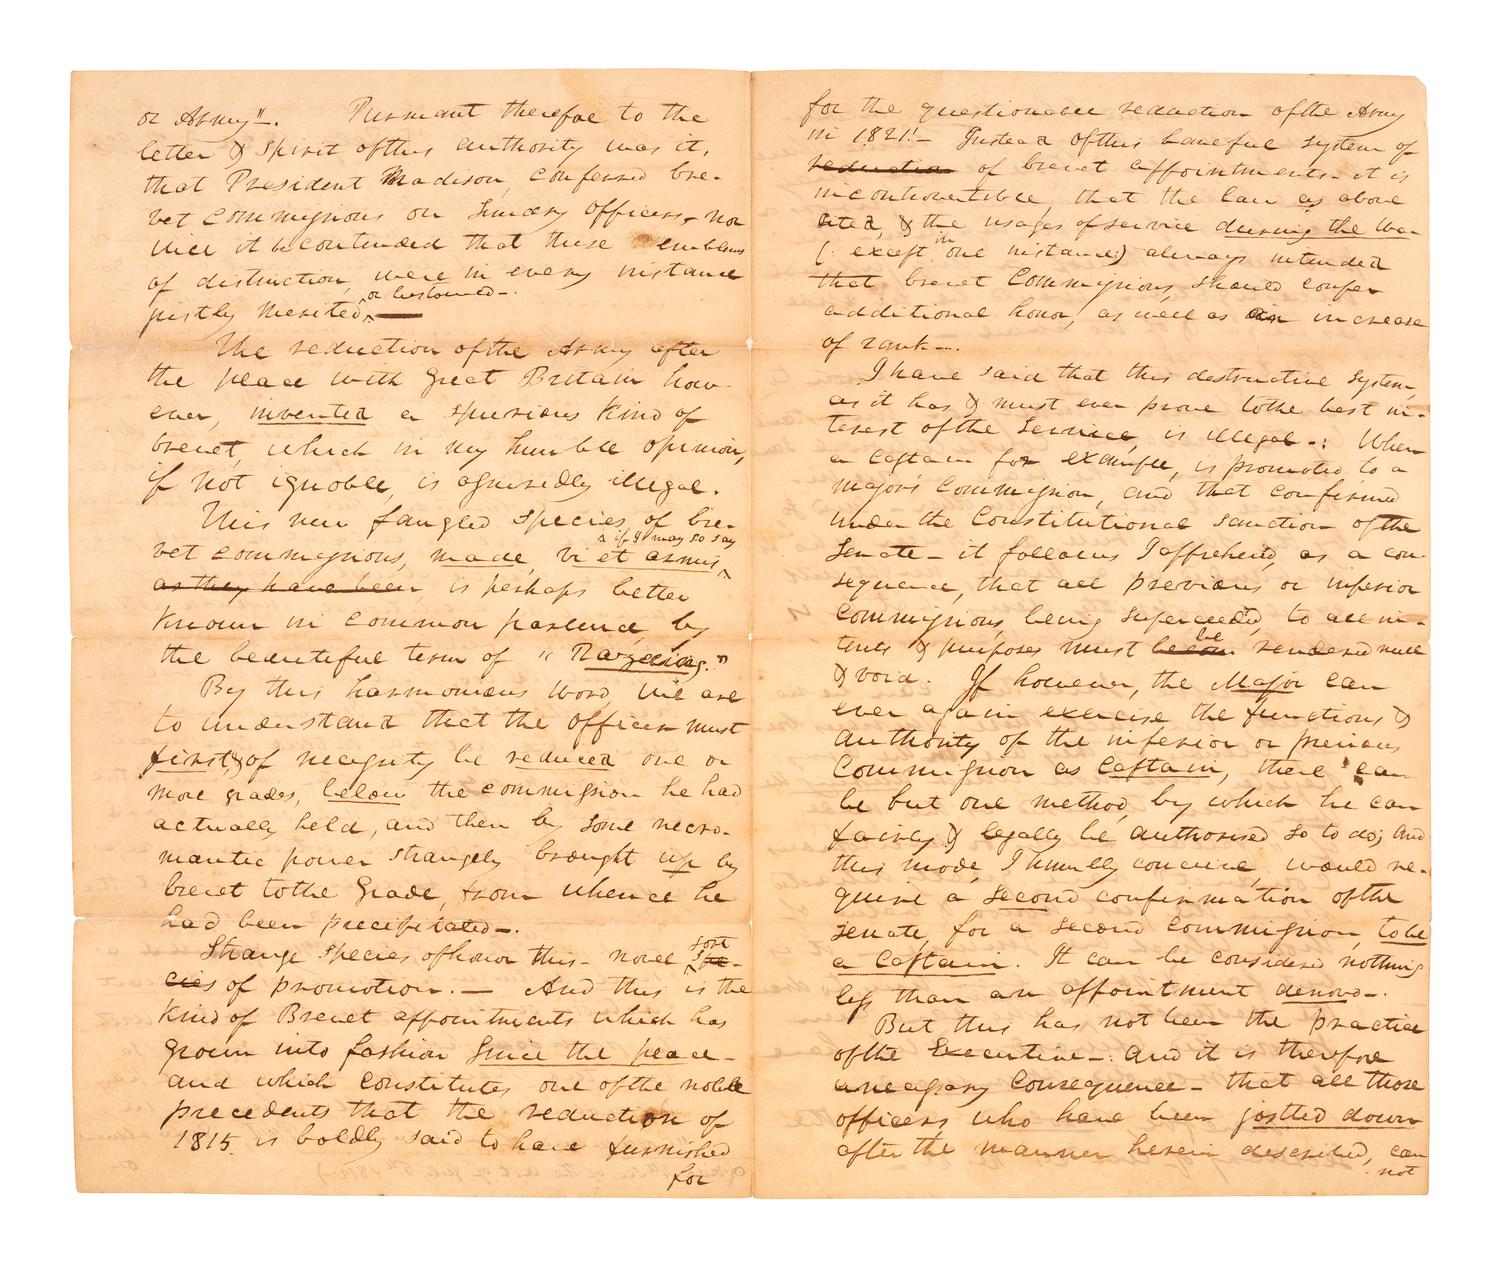 or Army". Pursuant therefore to the
letter & spirit of this authority was it,
that President Madison, conferred bre-
vet commissions on Sundry officers, nor
will it be contended that these emblems
of distinction, were in every instance
justly merited, or bestowed-.
The reduction of the Army after
the peace with Great Britain how-
ever, invented a spurious kind of
brevet, which in my humble opinion,
if not ignoble, is assuredly illegal.
This new fangled species, of bre-
vet commissions, made, vi et armis, if I may so say
as they have been is perhaps better
known in common parlance, by
the beautiful term of " Razeeing."
By this harmonious word, we are
to understand that the officer must
first, of necessity be reduced one or
more grades, below the commission he had
actually held, and then by some necro-
mantic power strangely brought up by
brevet to the Grade, from whence he
had been precipitated-.
Strange species of honor this- novel sort spe-
cies of promotion. — And this is the
kind of Brevet appointments which has
grown into fashion Since the peace-
and which constitutes one of the noble
precedents that the reduction of
1815. is boldly said to have furnished
for
for the questionable reduction of the Army
in 1821!- Instead of this baneful system of
reduction of brevet appointments- it is
incontrovertible, that the law as above
cited, & the usages of service during the War
(except in one instance) always intended
that brevet Commissions, should confer
additional honor, as well as an increase
of rank-.
I have said that this destructive System,
as it has & must ever prove to the best in-
terest of the Service, is illegal-: When
a Captain for example, is promoted, to a
major's Commission, and that confirmed
under the Constitutional sanction of the
Senate- it follows I apprehend, as a con-
sequence, that all previous or inferior
Commissions, being Superceeded, to all in-
tents & purposes must be rendered null
& void. If however, the Major can
ever again exercise the functions &
authority of the inferior or previous
Commission as Captain, there can
be but one method, by which he can
fairly & legally be authorised so to do; and
this mode, I humbly conceive, would re-
quire a second confirmation of the
Senate, for a second Commission, to be
a Captain. It can be considered nothing
less than an appointment denovo-.
But this has not been the practice
of the Executive-: and it is therefore
a necessary Consequence- that all those
officers who have been jostled down
after the manner herein described, can
not